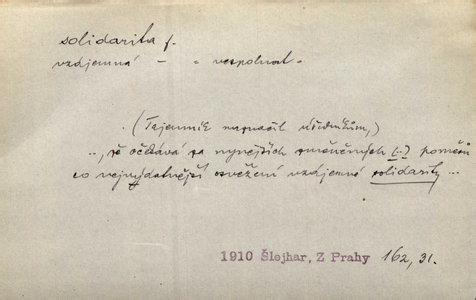 solidarita f.
vzájemná – " vespolnost "
(Tajemník naznačil úředníkům,)
.., že očekává za nynějších změněných (..) poměrů
co nejvydatnější osvěžení vzájemné solidarity ...
1910 Šlejhar, Z Prahy 162, 31.